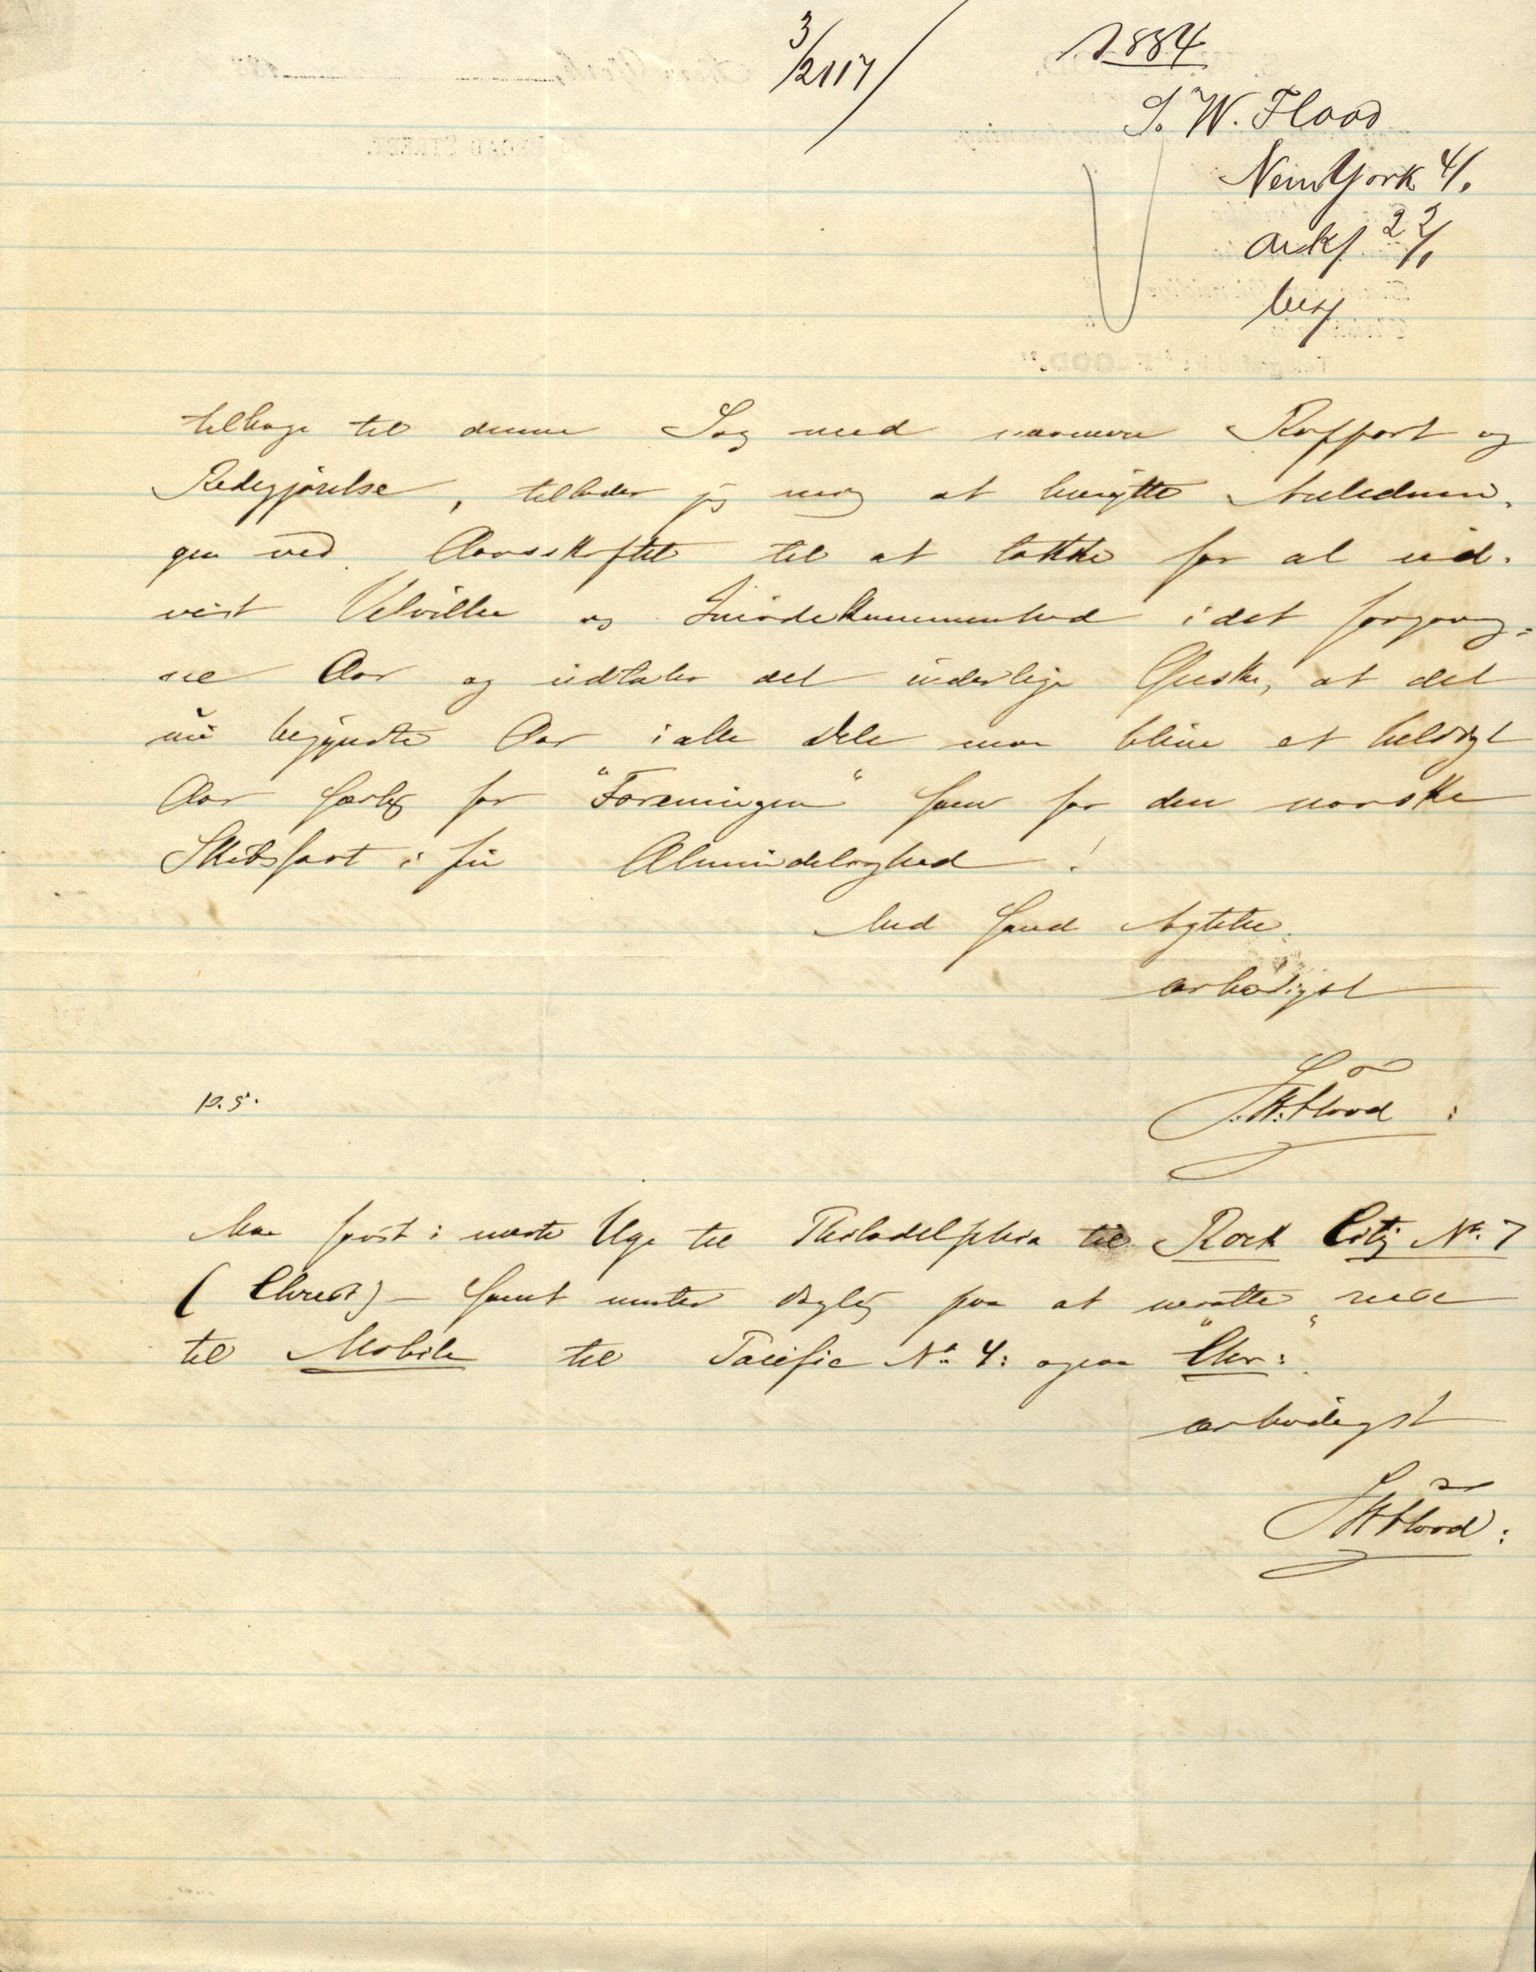 3/2117
1884
S. W. Flood
New York 4/1
ank 22/1
besv
tilbage til denne Sag med nærmere Rapport og
Redegjørelse, tillader jeg mig at benytte Anlednin-
gen ved Aarsskiftet til at takke for al ud-
vist Velvillie og Imødekommenhed i det forgang=
ne Aar og udtaler det inderlige Ønske, at det
nu begyndte Aar i alle Dele maa blive et heldigt
Aar særlig for "Foreningen" som for den norske
Skibsfart i sin Almindelighed!
Med sand Agtelse
ærbødigst
S.W. Flood:
P.S.
Maa først i næste Uge til Philadelphia til Rock City No. 7
(Christ) – samt venter daglig paa at maatte reise
til Mobile til Pacific No. 4: ogsaa "Chr:"
ærbødigst
S W Flood: